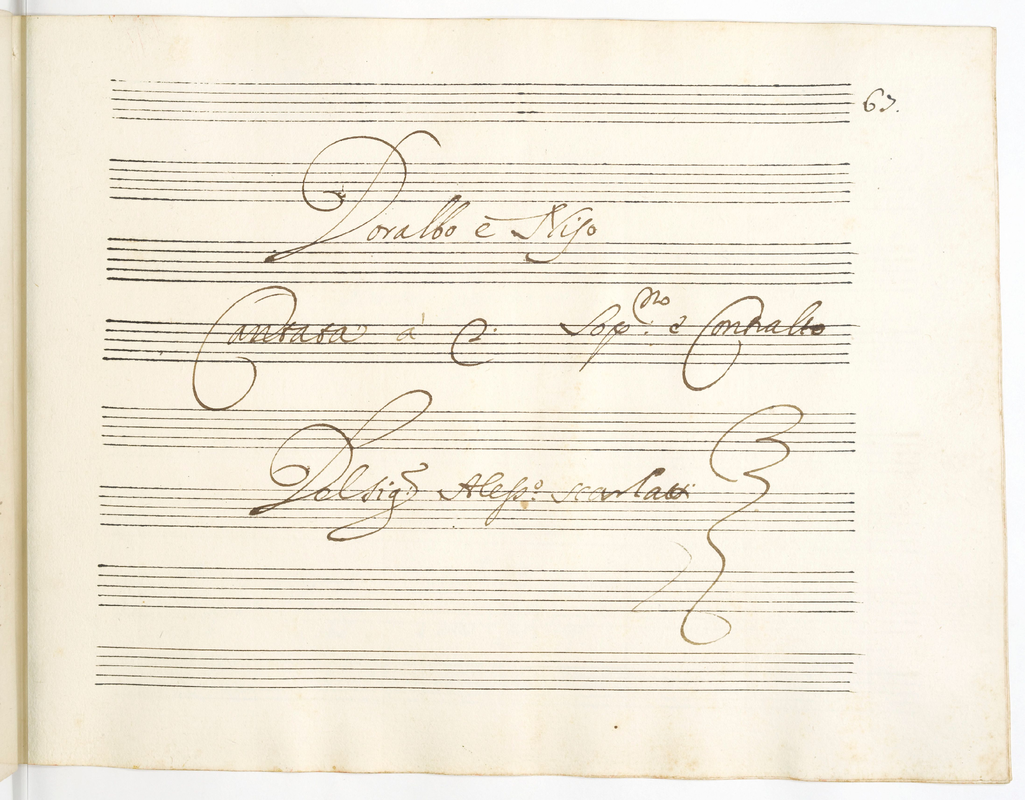 67.
Doralbo e Niso
Cantata à 2. Sop.no e Contralto
Del Sig.r Aless.o Scarlatti